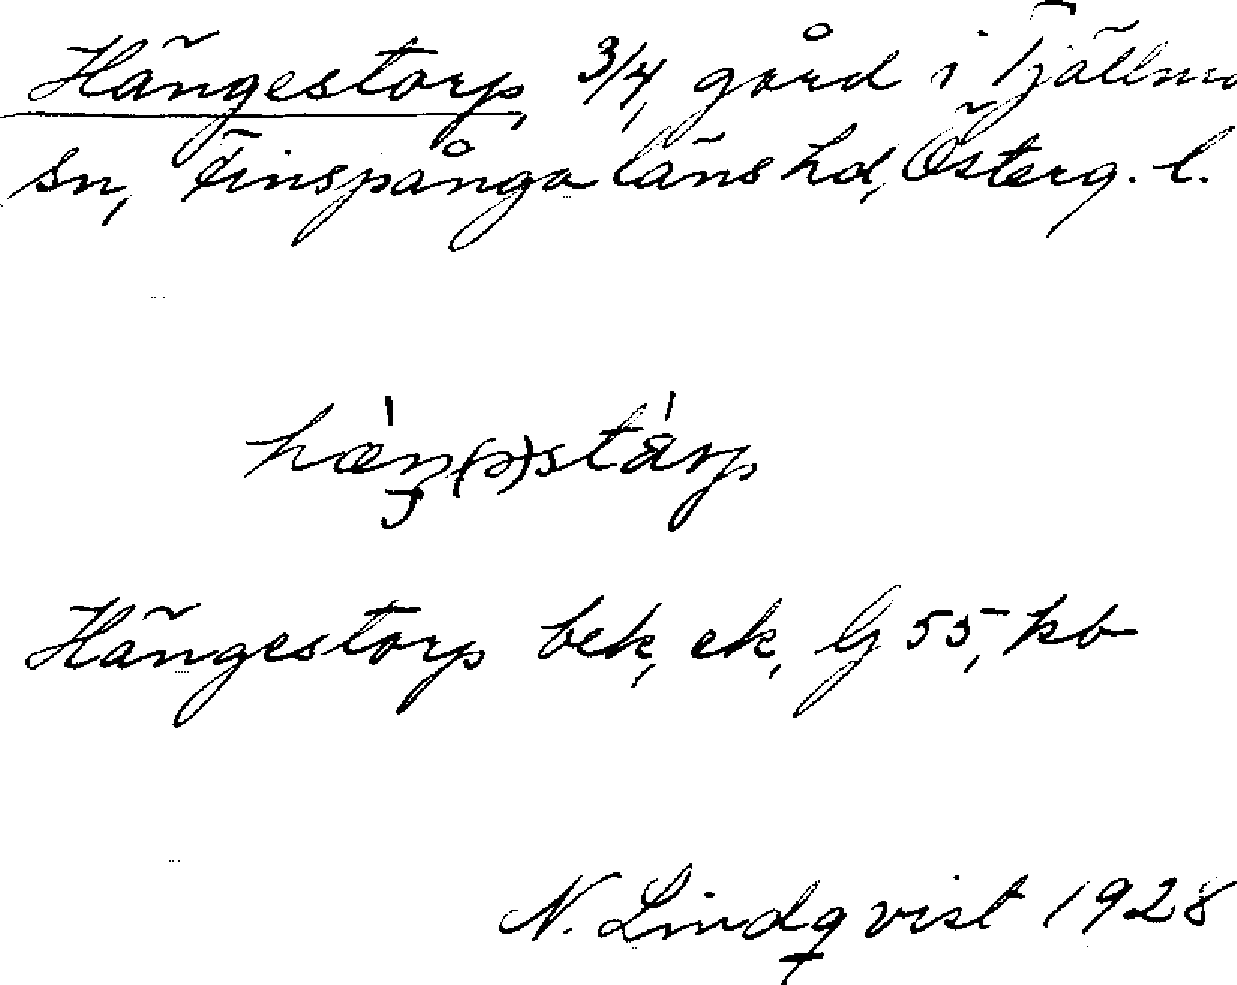 Hängestorp, 3/4, gård i Tjällmo
sn, Finspånga läns hd, Österg. l.
hæŋ(ə)stárp
Hängestorp bek, ek, G 55, kb
N. Lindqvist 1928